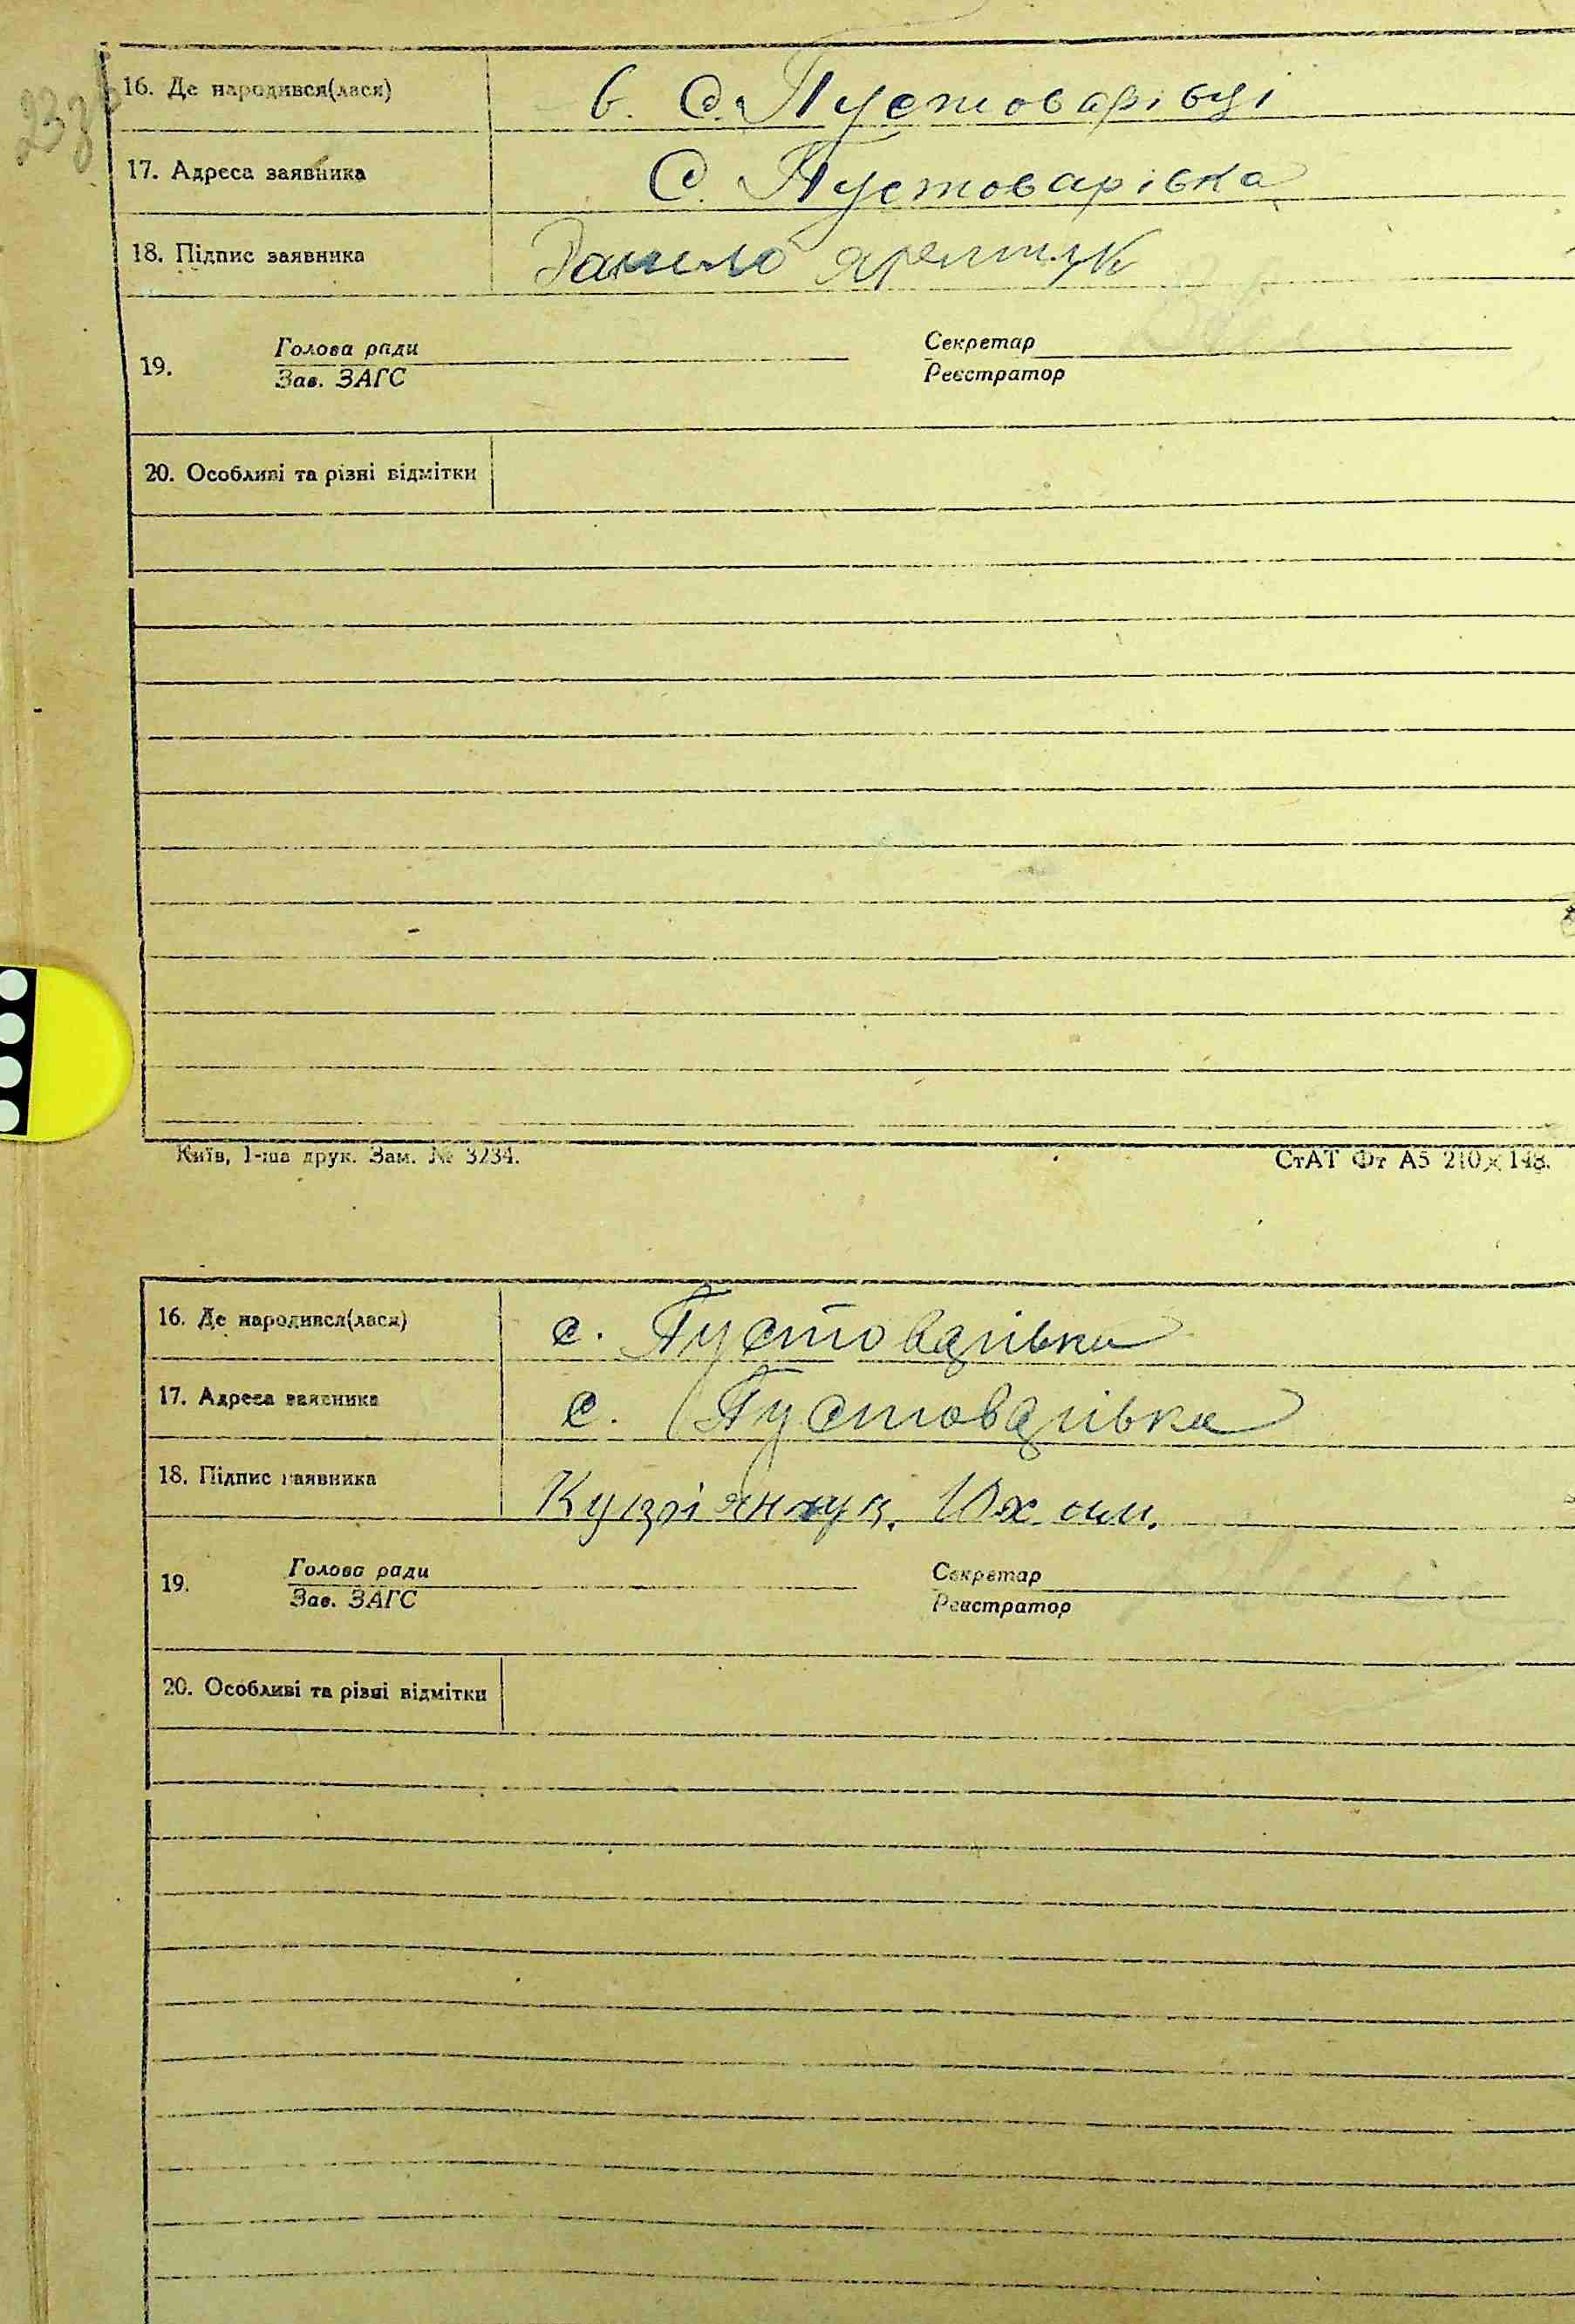 16. Де народився(лася) в. С. Пустоварівці
17. Адреса заявника С. Пустоварівка
18. Підпис заявника Данило
19. Голова ради Секретар
Зав. ЗАГС Реєстратор
20. Особливі та різні відмітки
Київ, 1-ша друк. Зам. № 3234. СтАТ Фт А5 210×148.
16. Де народився(лася) с. Пустоварівка
17. Адреса заявника с. Пустоварівка
18. Підпис заявника
19. Голова ради Секретар
Зав. ЗАГС Реєстратор
20. Особливі та різні відмітки